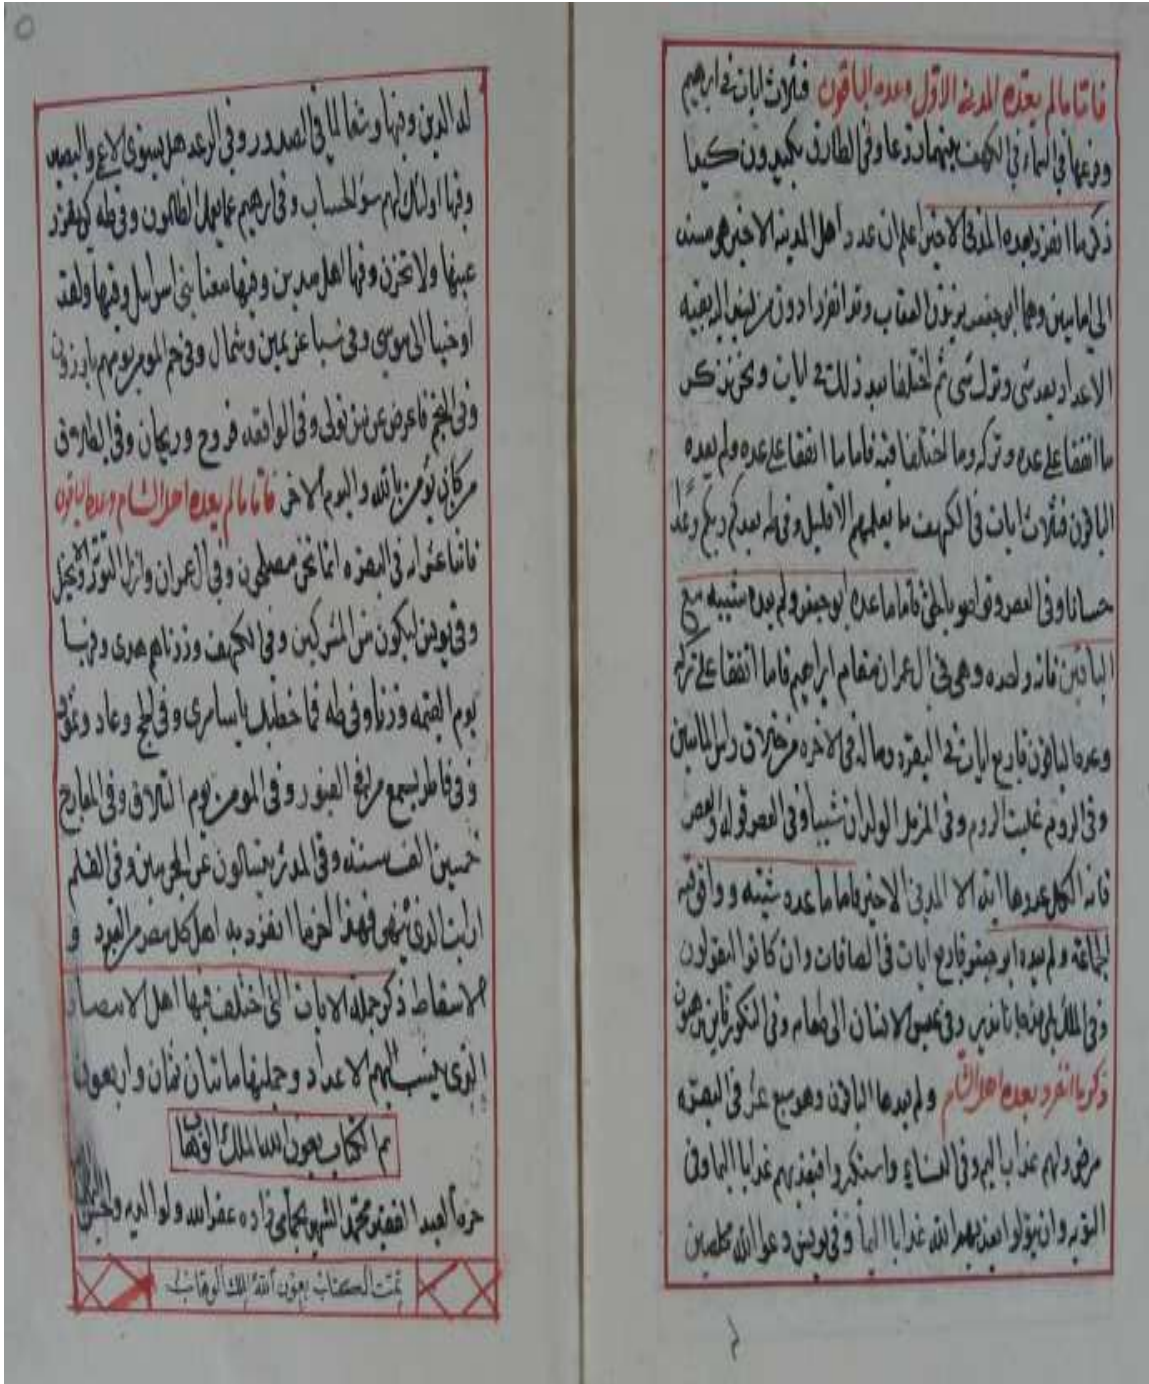 فاما ما لم يعده المدني الاول وعده الباقون فثلاث ايات في ابرهيم
وفرعها في السماء وفي الكهف بينهما زرعا وفي الطارق يكيدون كيدا
ذكر ما انفرد بعده المدني الاخير اعلم ان عدد اهل المدينة الاخير هو مسند
الى امامين وهما ابو جعفر يزيد بن القعقاع
الاعداد بعد شي وترك شي ثم اختلفا بعد ذلك في ايات ونحن نذكر
ما اتفقا على عده وتركه وما اختلفا فيه فاما ما اتفقا على عده ولم يعده
الباقون فثلاث ايات في الكهف ما يعلمهم الا قليل وفي طه يعدكم ربكم وعدا
حسنا وفي العصر وتواصوا بالحق فاما ما عده ابو جعفر ولم يعده شيبه مع
الباقين فانه واحده وهي في ال عمران مقام ابراهيم فاما ما اتفقا على تركه
وعده الباقون فاربع ايات في البقره وماله في الاخره من خلاق
وفي الروم غلبت الروم وفي المزمل الولدان شيبا وفي العصر قوله والعصر
فانه الكل عدوها ايه الا المدني الاخير فاما ما عده شيبه ووافق فيه
الجماعة ولم يعده ابو جعفر فاربع ايات في الصافات وان كانوا ليقولون
وفي الملك بلى قد جاءنا نذير وفي عبس الانسان الى طعامه وفي التكوير فاين تذهبون
ذكر ما انفرد بعده اهل الشام ولم يعدها الباقون وهو سبع عشر في البقره
مرض ولهم عذاب اليم وفي النساء واستكبروا فيعذبهم عذابا اليما وفي
التوبه وان يتولوا يعذبهم الله عذابا اليما وفي يونس دعوا الله مخلصين
له الدين وفيها وشفا لما في الصدور وفي الرعد هل يستوي الاعمى والبصير
وفيها اولئك لهم سؤ الحساب وفي ابرهيم عما يعمل الظالمون وفي طه كي تقر
عينها ولا تحزن وفيها اهل مدين وفيها معنا بني اسرائيل وفيها ولقد
اوحينا الى موسى وفي سبا عن يمين وشمال وفي حم المومن يوم هم بارزون
وفي النجم فاعرض عن من تولى وفي الواقعه فروح وريحان وفي الطلاق
من كان يؤمن بالله واليوم الاخر فاما ما لم يعده اهل الشام وعده الباقون
في البقره انما نحن مصلحون وفي ال عمران وانزل التورية والانجيل
وفي يونس ليكون من الشاكرين وفي الكهف وزدناهم هدى وفيها
يوم القيمه وزنا وفي طه فما خطبك يا سامري وفي الحج وعاد وثمود
وفي فاطر بسمع من في القبور وفي المومن يوم التلاق وفي المعارج
خمسين الف سنه وفي المدثر يتساءلون عن المجرمين وفي القلم
ارايت الذي ينهى فهذا اخر ما انفرد به اهل كل مصر من العدد و
الاسقاط ذكر جملة الايات التي اختلف فيها اهل الامصار
الذي ينسب اليهم الاعداد وجملتها مائتان ثمان واربعون
تم الكتاب بعون الله الملك الوهاب
حرره العبد الفقير محمد الشهير زاده غفر الله ولوالديه
تمت الكتاب بعون الله الملك الوهاب